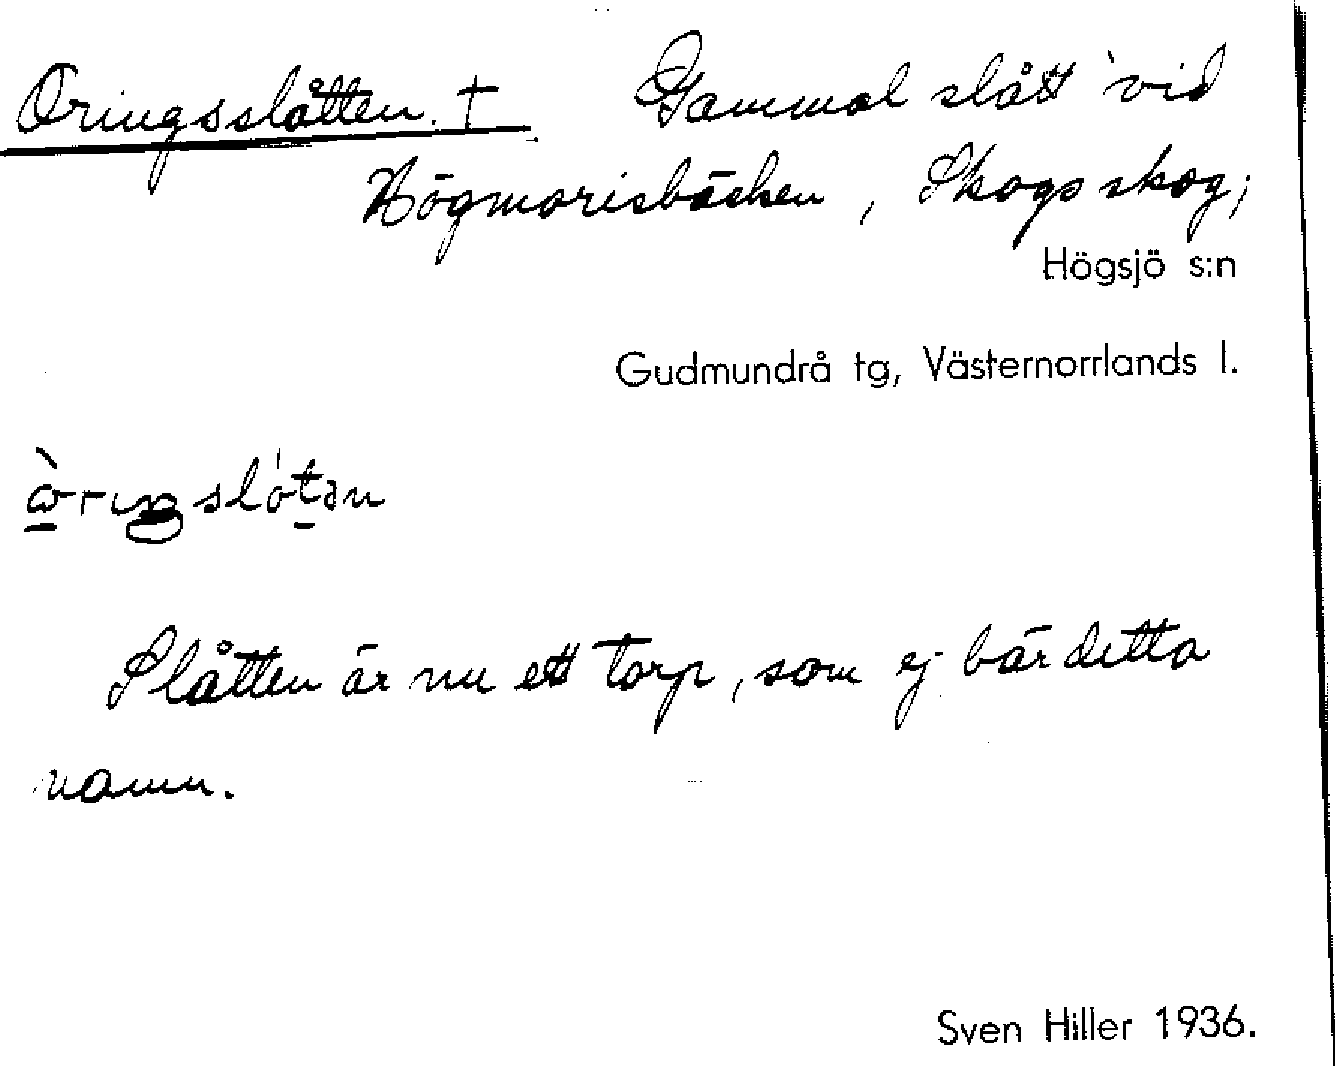 Oringsslåtten. † Gammal slått vid
Högmorisbäcken, Skogs skog;
Högsjö s:n
Gudmundrå tg, Västernorrlands l.
Slåtten är nu ett torp, som ej bär detta
namn.
Sven Hiller 1936.